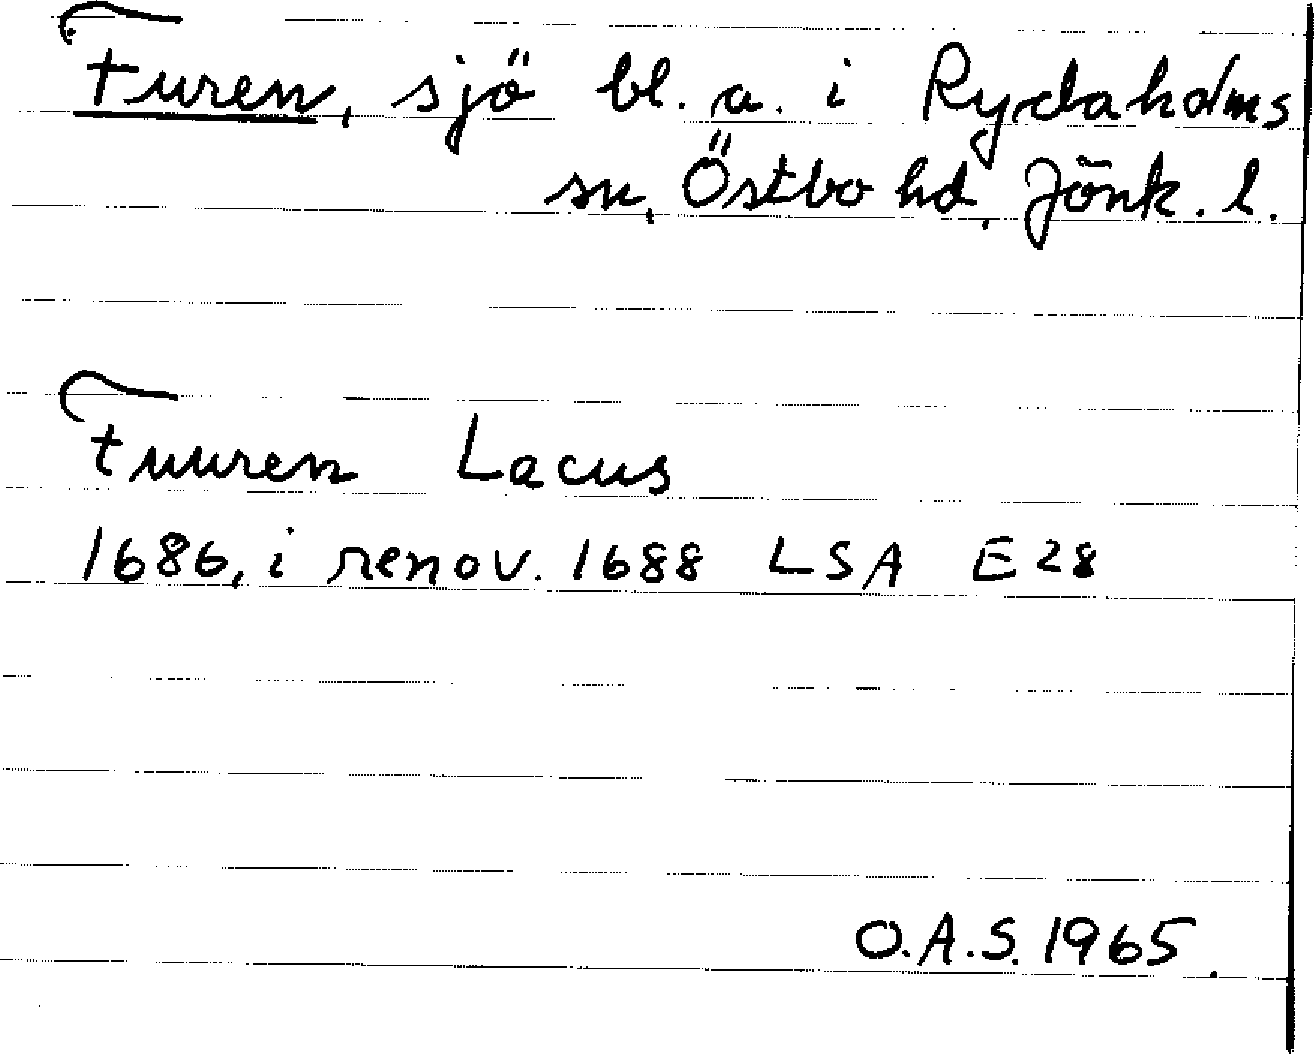 Furen, sjö bl. a. i Rydaholms
sn, Östbo hd, Jönk. l.
Fuuren Lacus
1686, i renov. 1688 LSA E28
O.A.S. 1965.